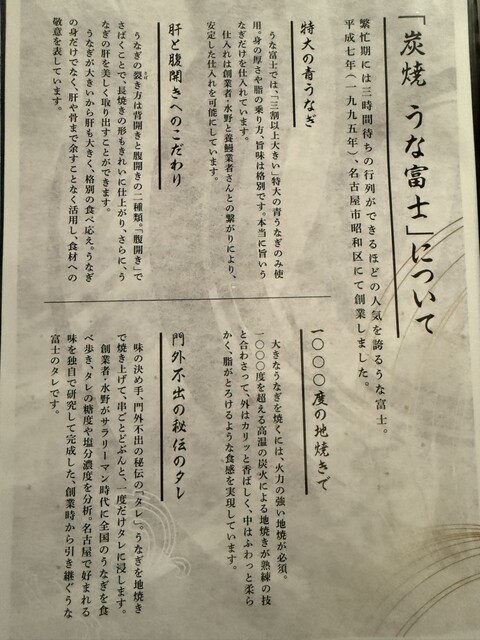 「炭焼 うな富士」について
繁忙期には三時間待ちの行列ができるほどの人気を誇るうな富士。
平成七年(一九九五年)、名古屋市昭和区にて創業しました。
特大の青うなぎ
うな富士では、「三割以上大きい」特大の青うなぎのみ使
用。身の厚さや脂の乗り方、旨味は格別です。本当に旨いう
なぎだけを仕入れています。
仕入れは創業者・水野と養鰻業者さんとの繋がりにより、
安定した仕入れを可能にしています。
肝と腹開きへのこだわり
うなぎの裂き方は背開きと腹開きの二種類。「腹開き」で
さばくことで、長焼きの形もきれいに仕上がり、さらに、う
なぎの肝を美しく取り出すことができます。
うなぎが大きいから肝も大きく、格別の食べ応え。うなぎ
の身だけでなく、肝や骨まで余すことなく活用し、食材への
敬意を表しています。
一〇〇〇度の地焼きで
大きなうなぎを焼くには、火力の強い地焼が必須。
一〇〇〇度を超える高温の炭火による地焼きが熟練の技
と合わさって、外はカリッと香ばしく、中はふわっと柔ら
かく、脂がとろけるような食感を実現しています。
門外不出の秘伝のタレ
味の決め手、門外不出の秘伝の「タレ」。うなぎを地焼き
で焼き上げて、串ごとどぶんと、一度だけタレに浸します。
創業者・水野がサラリーマン時代に全国のうなぎを食
べ歩き、タレの糖度や塩分濃度を分析。名古屋で好まれる
味を独自で研究して完成した、創業時から引き継ぐうな
富士のタレです。